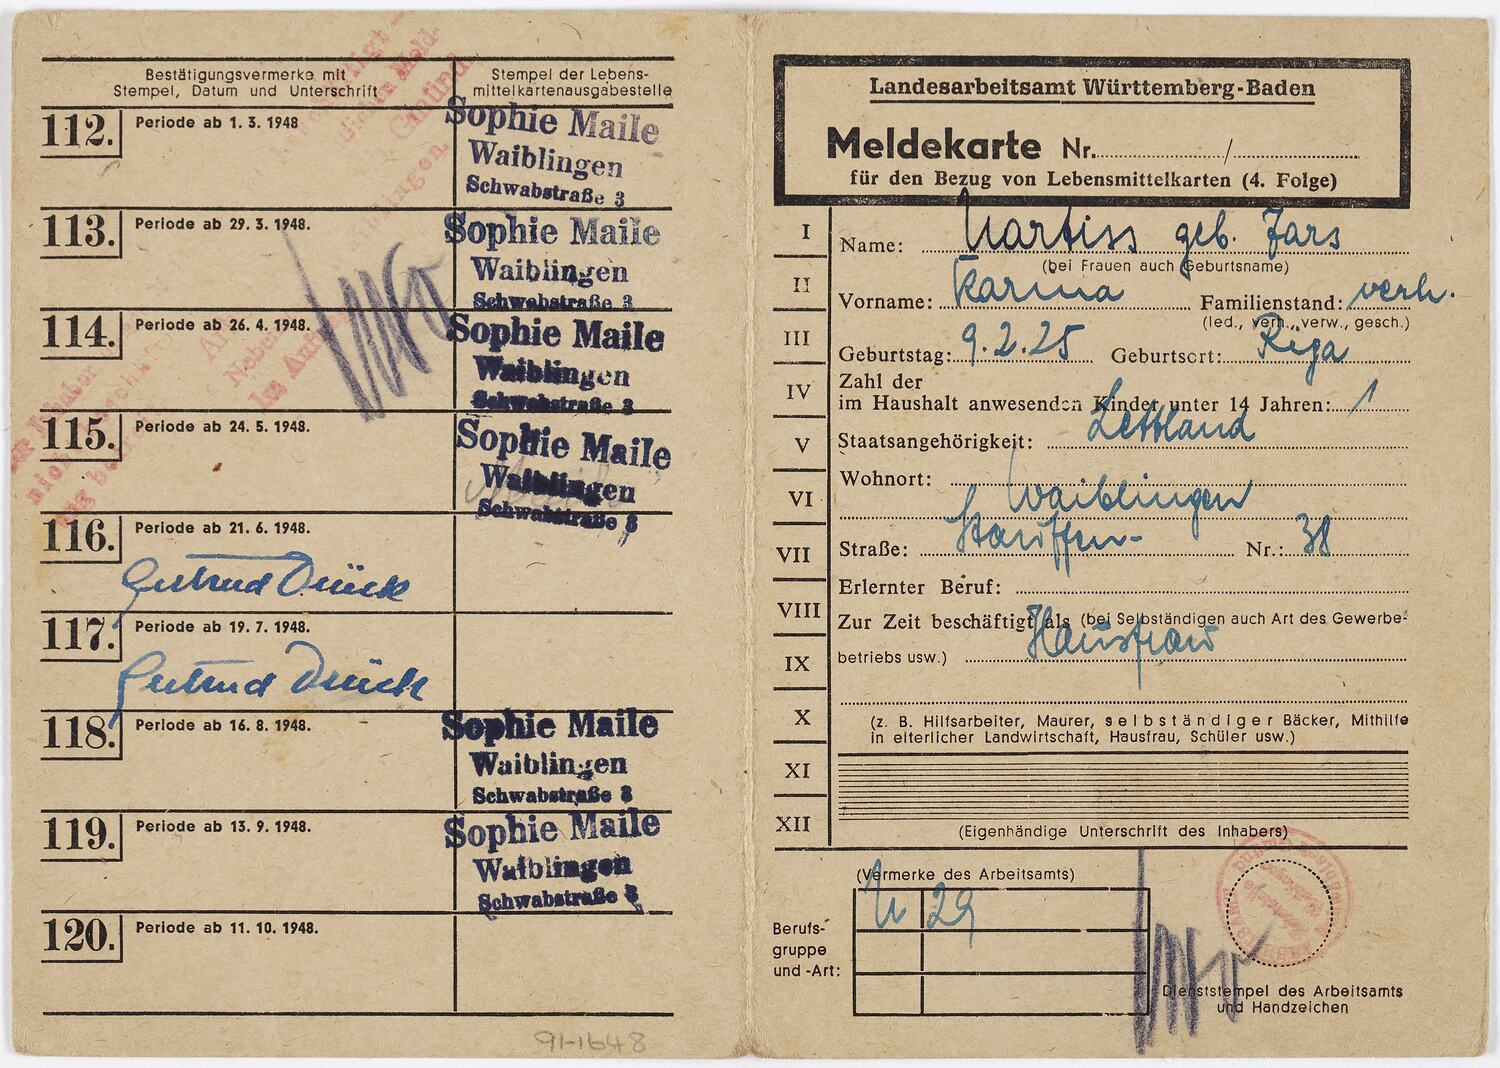 Bestätigungsvermerke mit
Stempel, Datum und Unterschrift
Stempel der Lebens-
mittelkartenausgabestelle
112. Periode ab 1. 3. 1948
Sophie Maile
Waiblingen
Schwabstraße 3
113. Periode ab 29. 3. 1948.
Sophie Maile
Waiblingen
Schwabstraße 3
114. Periode ab 26. 4. 1948.
Sophie Maile
Waiblingen
Schwabstraße 3
115. Periode ab 24. 5. 1948.
Sophie Maile
Waiblingen
Schwabstraße 3
116. Periode ab 21. 6. 1948.
Gertrud Drück
117. Periode ab 19. 7. 1948.
Gertrud Drück
118. Periode ab 16. 8. 1948.
Sophie Maile
Waiblingen
Schwabstraße 3
119. Periode ab 13. 9. 1948.
Sophie Maile
Waiblingen
Schwabstraße 3
120. Periode ab 11. 10. 1948.
91-1648
Landesarbeitsamt Württemberg-Baden
Meldekarte Nr. /
für den Bezug von Lebensmittelkarten (4. Folge)
I
II
III
IV
V
VI
VII
VIII
IX
X
XI
XII
Name: Nartiss geb. Jars
(bei Frauen auch Geburtsname)
Vorname: Karina Familienstand: verh.
(led., verh., verw., gesch.)
Geburtstag: 9.2.25 Geburtsort: Riga
Zahl der
im Haushalt anwesenden Kinder unter 14 Jahren: 1
Staatsangehörigkeit: Lettland
Wohnort: Waiblingen
Straße: Stauffen- Nr.: 38
Erlernter Beruf:
Zur Zeit beschäftigt als (bei Selbständigen auch Art des Gewerbe-
betriebs usw.) Hausfrau
(z. B. Hilfsarbeiter, Maurer, selbständiger Bäcker, Mithilfe
in elterlicher Landwirtschaft, Hausfrau, Schüler usw.)
(Eigenhändige Unterschrift des Inhabers)
(Vermerke des Arbeitsamts)
Berufs-
gruppe
und -Art:
29
Dienststempel des Arbeitsamts
und Handzeichen